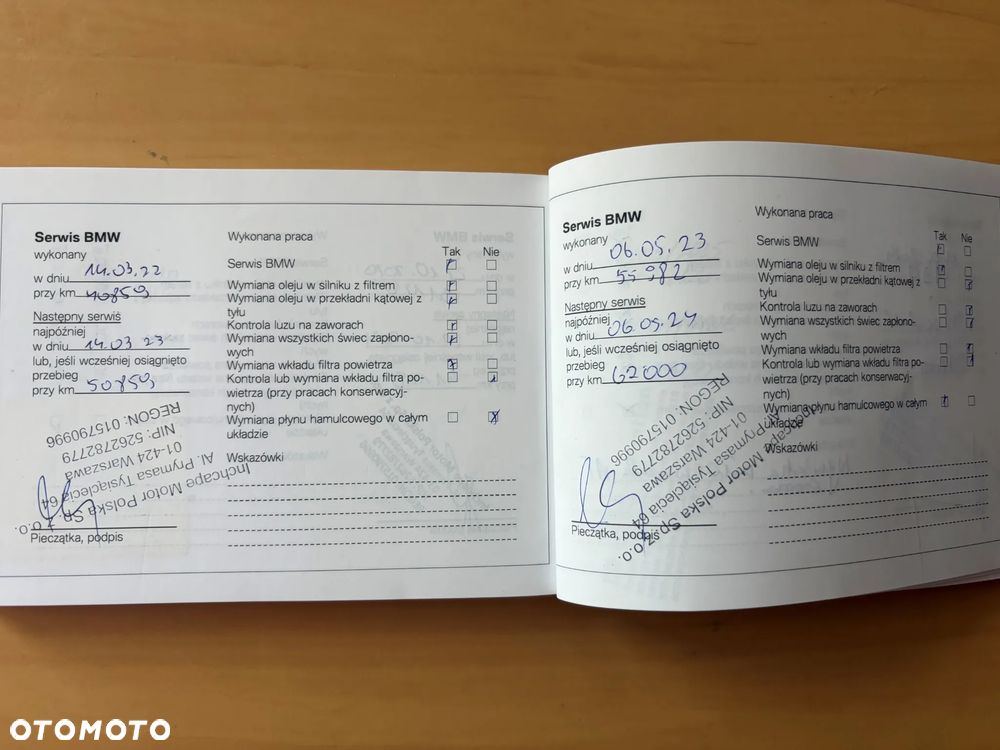 Serwis BMW
wykonany
w dniu 14.03.22
przy km 40859
Następny serwis
najpóźniej
w dniu 14.03 23
lub, jeśli wcześniej osiągnięto
przebieg
przy km 50859
Inchcape Motor Polska Sp. z o.o.
Al. Prymasa Tysiąclecia 64
01-424 Warszawa
NIP: 5262782779
REGON: 015790996
Pieczątka, podpis
Wykonana praca
Tak Nie
Serwis BMW
Wymiana oleju w silniku z filtrem
Wymiana oleju w przekładni kątowej z
tyłu
Kontrola luzu na zaworach
Wymiana wszystkich świec zapłono-
wych
Wymiana wkładu filtra powietrza
Kontrola lub wymiana wkładu filtra po-
wietrza (przy pracach konserwacyj-
nych)
Wymiana płynu hamulcowego w całym
układzie
Wskazówki
Serwis BMW
wykonany
w dniu 06.05.23
przy km 55982
Następny serwis
najpóźniej
w dniu 06.05.24
lub, jeśli wcześniej osiągnięto
przebieg
przy km 62000
Inchcape Motor Polska Sp. z o.o.
Al. Prymasa Tysiąclecia 64
01-424 Warszawa
NIP: 5262782779
REGON: 015790996
Pieczątka, podpis
Wykonana praca
Tak Nie
Serwis BMW
Wymiana oleju w silniku z filtrem
Wymiana oleju w przekładni kątowej z
tyłu
Kontrola luzu na zaworach
Wymiana wszystkich świec zapłono-
wych
Wymiana wkładu filtra powietrza
Kontrola lub wymiana wkładu filtra po-
wietrza (przy pracach konserwacyj-
nych)
Wymiana płynu hamulcowego w całym
układzie
Wskazówki
OTOMOTO